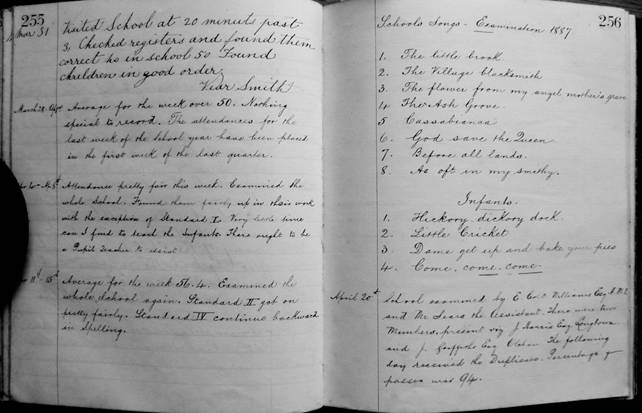 255
Mar 31 Visited School at 20 minuts past
3, Checked registers and found them
correct No in school 50 Found
children in good order
Vear Smith
March 28 Apr 1 Average for the week over 50. Nothing
special to record. The attendances for the
last week of the school year have been placed
in the first week of the last quarter.
Attendance pretty fair this week. Examined the
whole School. Found them fairly up in their work
with the exception of Standard I. Very little time
can I find to teach the Infants. There ought to be
a Pupil Teacher to assist.
Average for the week 56.4. Examined the
whole school again. Standard II got on
pretty fairly. Standard IV continues backward
in Spelling.
256
Schools Songs - Examination 1887
1. The little brook
2. The Village blacksmith
3. The flower from my angel mother's grave
4. The Ash Grove
5 Cassabianca
6. God save the Queen
7. Before all lands.
8. As oft in my smithy.
Infants.
1. Hickory, dickory dock.
2. Little Cricket
3. Dame get up and bake your pies
4. Come, come, come.
April 20th School examined by E. Williams Esq H.M.I.
and Mr Sears the Assistant. There were two
Members, present viz J Harris Esq Longtown
and J. Griffiths Esq The following
day received the Duplicate. Percentage of
passes was 94.